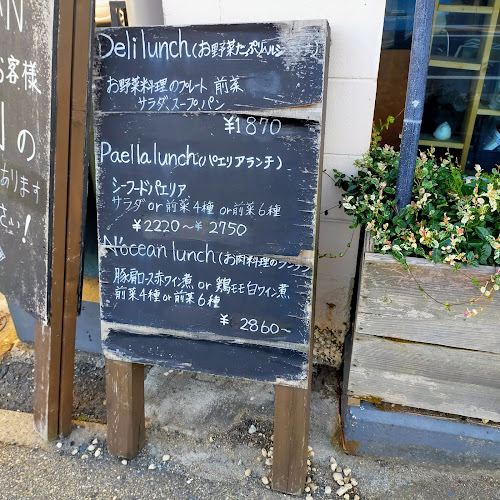 AN
お客様
の
あります
さい!
Deli lunch(お野菜たっぷり
お野菜料理のプレート 前菜
サラダ、スープ、パン
¥1870
Paella lunch(パエリアランチ)
シーフードパエリア
サラダ or 前菜4種 or 前菜6種
¥2220〜¥2750
N'ocean lunch(お肉料理のランチ)
豚肩ロース赤ワイン煮 or 鶏モモ白ワイン煮
前菜4種 or 前菜6種
¥2860〜